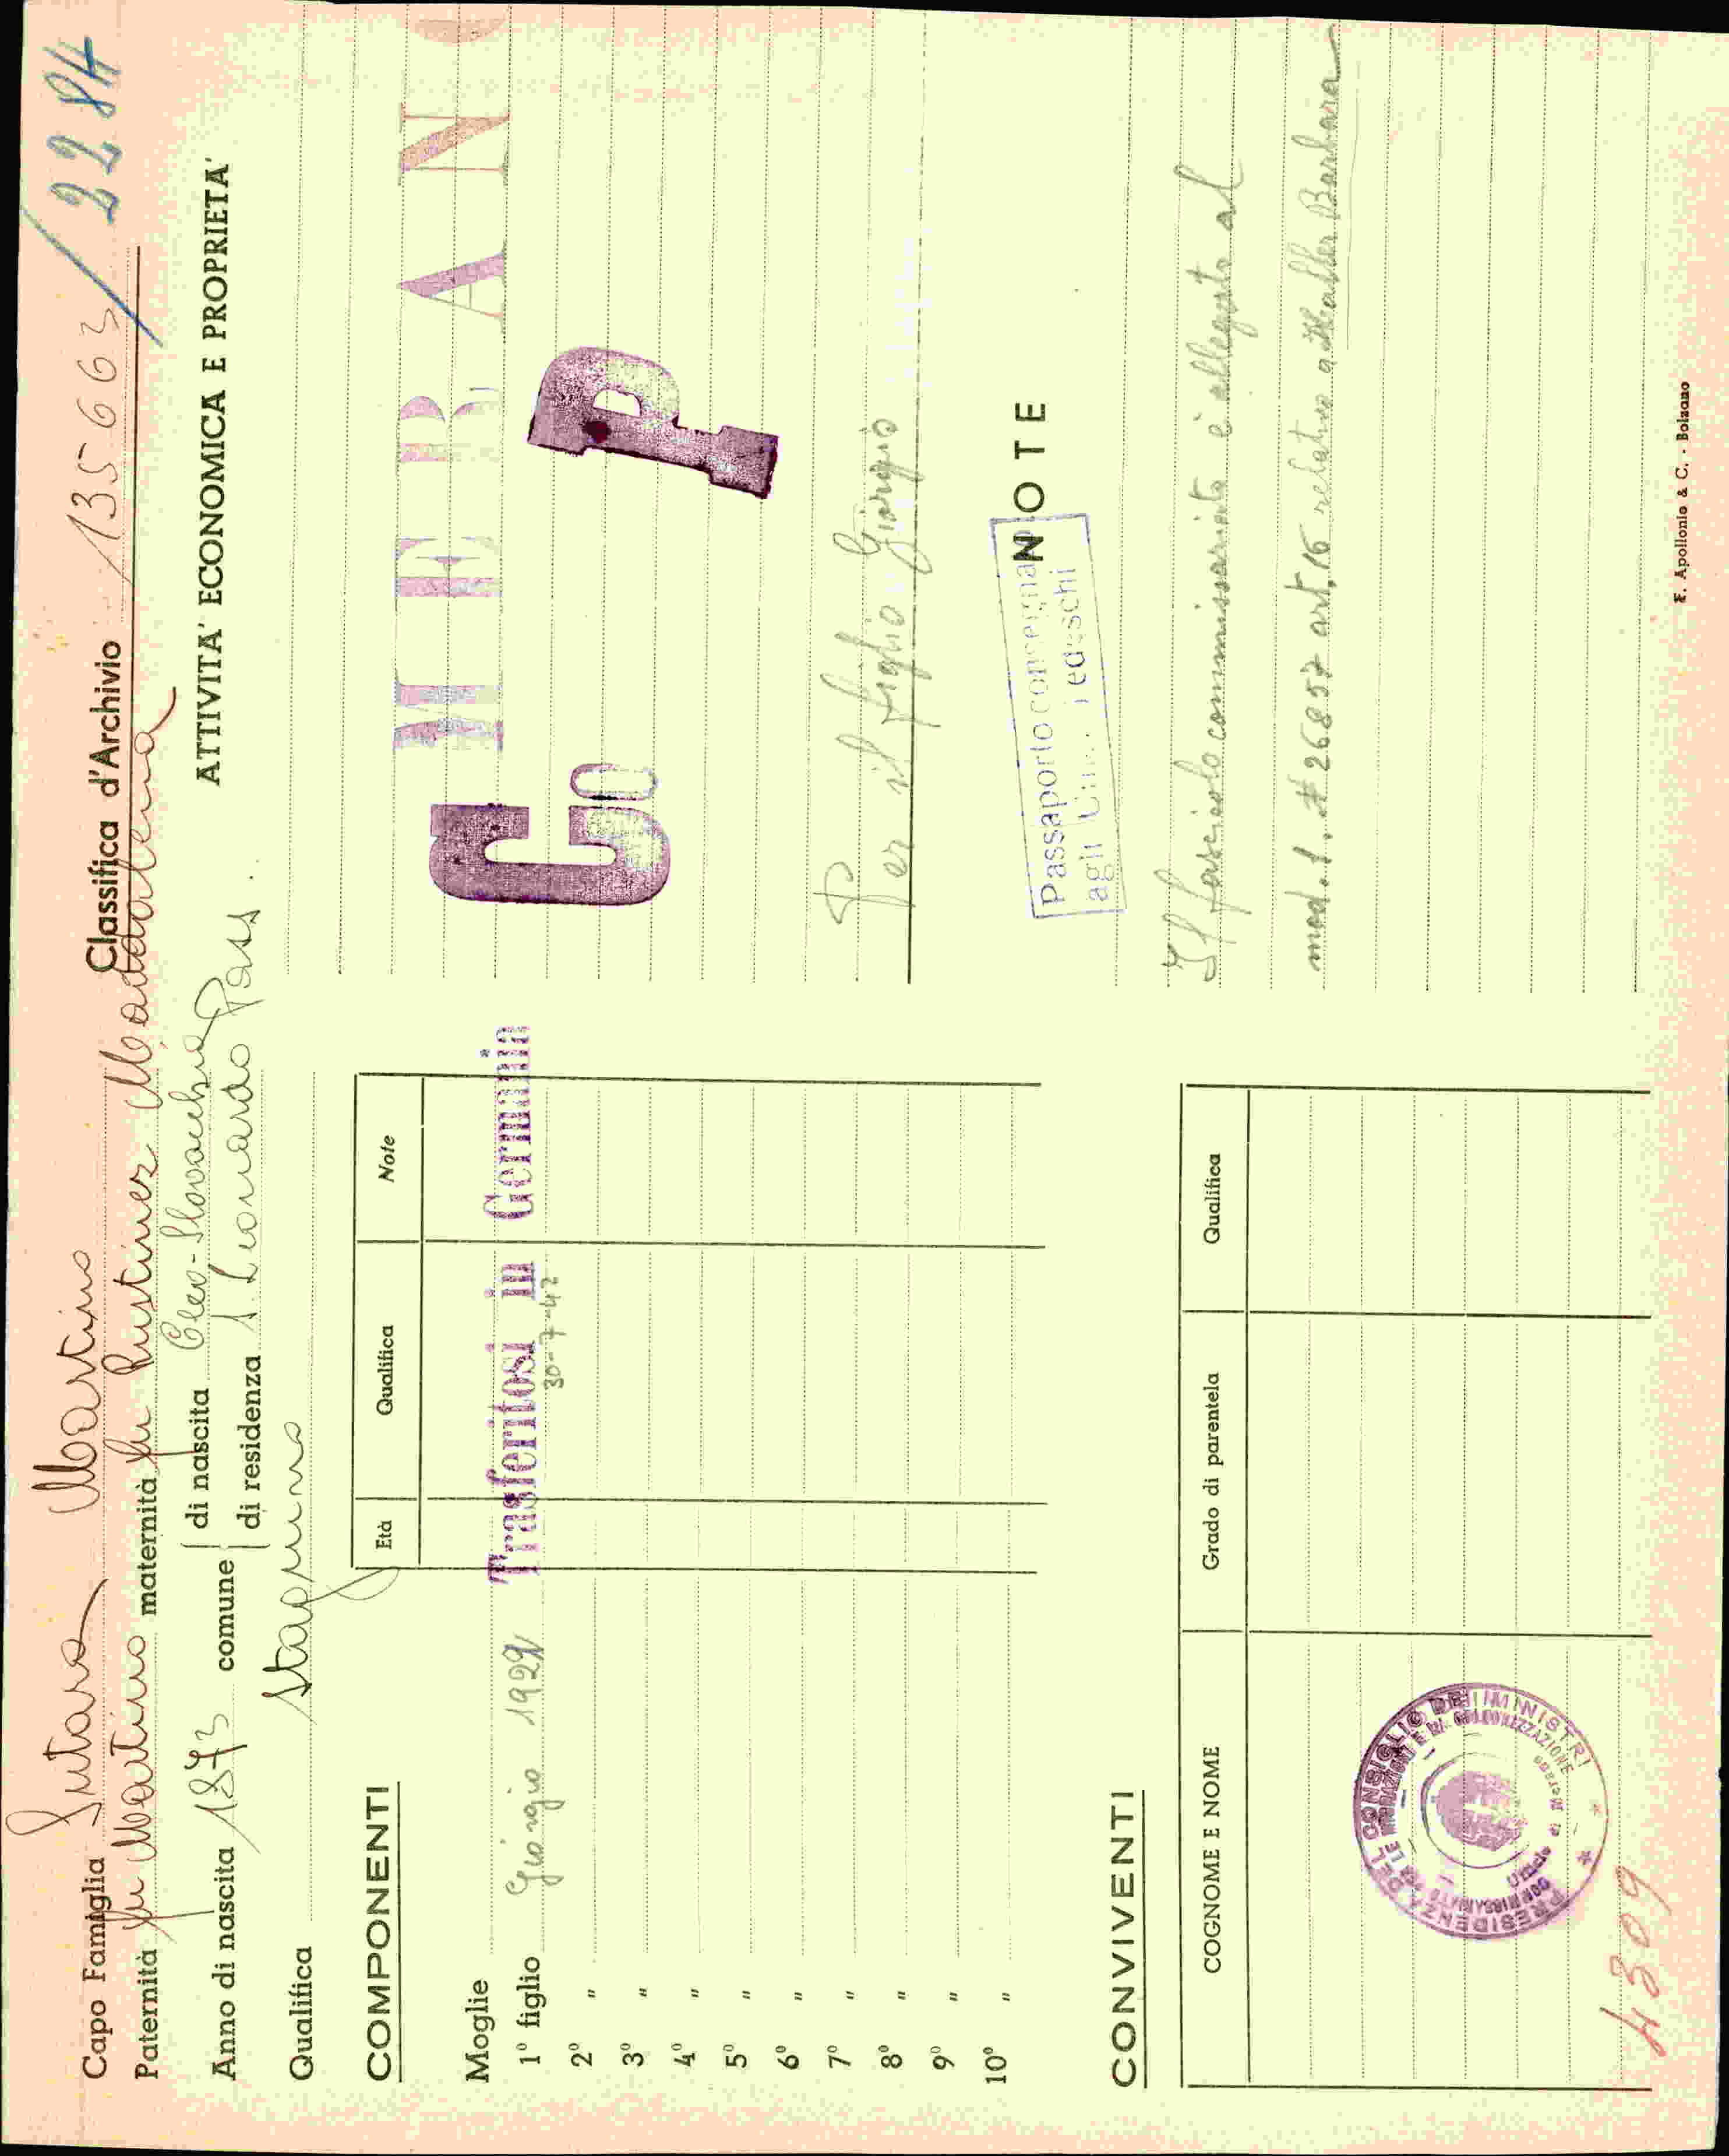 Capo Famiglia Sutara Martino Classifica d'Archivio 135663 / 2284
Paternità fu Martino maternità fu Pristiner Maddalena
Anno di nascita 1873 comune di nascita Cleo-Slovacchia
di residenza S. Leonardo Pass.
Qualifica stagnino
ATTIVITA' ECONOMICA E PROPRIETA'
COMPONENTI
Età Qualifica Note
Moglie
Trasferitosi in Germania
1° figlio Giorgio 1922 30-7-42
2° "
3° "
4° "
5° "
6° "
7° "
8° "
9° "
10° "
MERANO
G P
Per il figlio Giorgio
NOTE
Passaporto consegnato
agli tedeschi
Il fascicolo commissariato è allegato al
mod. 1. # 26857 art. 16 relativo a Barbara
CONVIVENTI
COGNOME E NOME Grado di parentela Qualifica
PRESIDENZA DEL CONSIGLIO DEI MINISTRI
COMMISSARIATO PER LE MIGRAZIONI E LA COLONIZZAZIONE
Ufficio di Merano
4309
E. Apollonio & C. - Bolzano